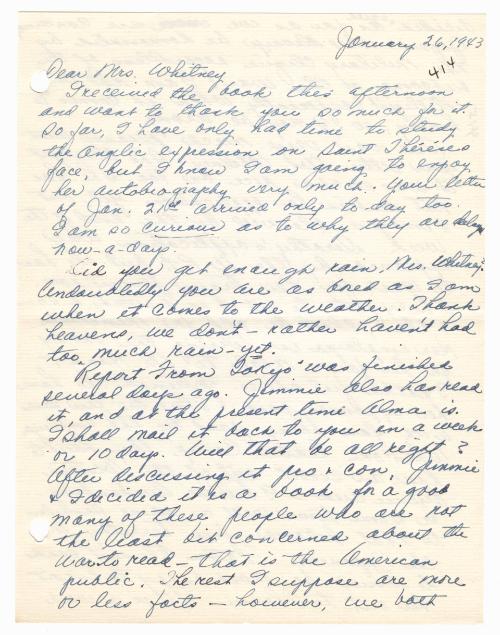 January 26, 1943
414
Dear Mrs. Whitney,
I received the book this afternoon
and want to thank you so much for it.
So far, I have only had time to study
the angelic expression on Saint Thérèse's
face, but I know I am going to enjoy
her autobiography very much. Your letter
of Jan. 21st arrived only to-day too.
I am so curious as to why they are
now-a-days.
Did you get enough rain, Mrs. Whitney?
Undoubtedly you are as bored as I am
when it comes to the weather. Thank
heavens, we don't - rather haven't had
too much rain - yet.
"Report From Tokyo" was finished
several days ago. Jimmie also has read
it, and at the present time Alma is.
I shall mail it back to you in a week
or 10 days. Will that be all right?
After discussing it pro & con, Jimmie
& I decided it is a book for a good
many of these people who are not
the least bit concerned about the
war to read - that is the American
public. The rest I suppose are more
or less facts - however, we both